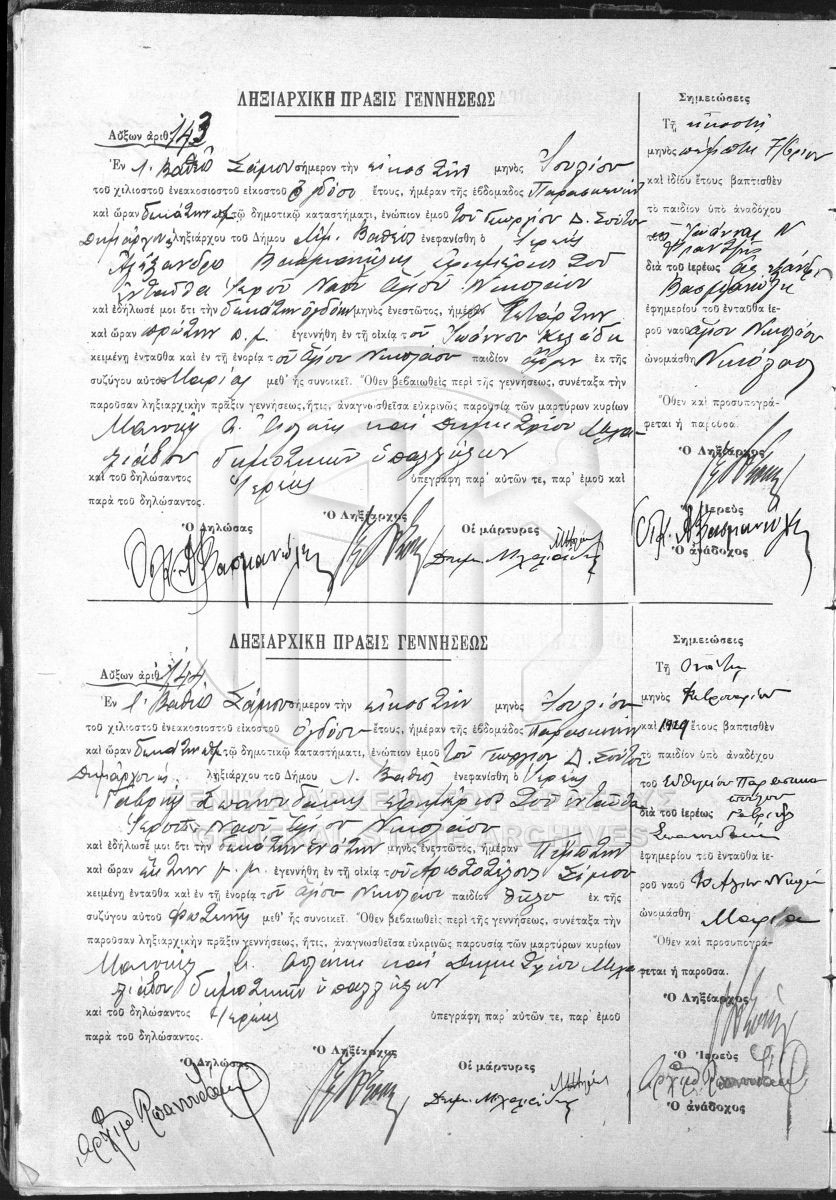 ΛΗΞΙΑΡΧΙΚΗ ΠΡΑΞΙΣ ΓΕΝΝΗΣΕΩΣ
Αὔξων ἀριθ. 143
Ἐν Λ. Βαθέος Σάμου σήμερον τὴν εἰκοστὴν μηνὸς Ἰουλίου
τοῦ χιλιοστοῦ ἐνεακοσιοστοῦ εἰκοστοῦ ὀγδόου ἔτους, ἡμέραν τῆς ἑβδομάδος Παρασκευὴν
καὶ ὥραν δεκάτην π.μ. τῷ δημοτικῷ καταστήματι, ἐνώπιον ἐμοῦ τοῦ Γεωργίου Δ. Σούτου
Δημάρχου ληξιάρχου τοῦ Δήμου Λιμ. Βαθέος ἐνεφανίσθη ὁ Ἱερεὺς
Ἀλέξανδρος ἐφημέριος τοῦ
ἐνταῦθα Ἱεροῦ Ναοῦ Ἁγίου Νικολάου
καὶ ἐδήλωσέ μοι ὅτι τὴν δεκάτην ὀγδόην μηνὸς ἐνεστῶτος, ἡμέραν Τετάρτην
καὶ ὥραν πρώτην π.μ. ἐγεννήθη ἐν τῇ οἰκίᾳ τοῦ Ἰωάννου
κειμένῃ ἐνταῦθα καὶ ἐν τῇ ἐνορίᾳ τοῦ Ἁγίου Νικολάου παιδίον ἄρρεν ἐκ τῆς
συζύγου αὐτοῦ Μαρίας μεθ' ἧς συνοικεῖ. Ὅθεν βεβαιωθεὶς περὶ τῆς γεννήσεως, συνέταξα τὴν
παροῦσαν ληξιαρχικὴν πρᾶξιν γεννήσεως, ἥτις, ἀναγνωσθεῖσα εὐκρινῶς παρουσίᾳ τῶν μαρτύρων κυρίων
καὶ Δημητρίου Μιχα-
λιάδου δημοτικῶν ὑπαλλήλων
καὶ τοῦ δηλώσαντος Ἱερέως ὑπεγράφη παρ' αὐτῶν τε, παρ' ἐμοῦ καὶ
παρὰ τοῦ δηλώσαντος.
Ὁ Δηλώσας Ὁ Ληξίαρχος Οἱ μάρτυρες
Σημειώσεις
Τῇ εἰκοστῇ
μηνὸς πέμπτῃ 7/βρίου
καὶ ἰδίου ἔτους βαπτισθὲν
τὸ παιδίον ὑπὸ ἀναδόχου
Ἰωάννας Ν
διὰ τοῦ ἱερέως Ἀλεξάνδρ
ἐφημερίου τοῦ ἐνταῦθα ἱε-
ροῦ ναοῦ Ἁγίου Νικολάου
ὠνομάσθη Νικόλαος
Ὅθεν καὶ προσυπογρά-
φεται ἡ παροῦσα.
Ὁ Ληξίαρχος
Ὁ Ἱερεὺς
Ὁ ἀνάδοχος
ΛΗΞΙΑΡΧΙΚΗ ΠΡΑΞΙΣ ΓΕΝΝΗΣΕΩΣ
Αὔξων ἀριθ. 144
Ἐν Λ. Βαθέος Σάμου σήμερον τὴν εἰκοστὴν μηνὸς Ἰουλίου
τοῦ χιλιοστοῦ ἐνεακοσιοστοῦ εἰκοστοῦ ὀγδόου ἔτους, ἡμέραν τῆς ἑβδομάδος Παρασκευὴν
καὶ ὥραν δεκάτην π.μ. τῷ δημοτικῷ καταστήματι, ἐνώπιον ἐμοῦ τοῦ Γεωργίου Δ. Σούτου
Δημάρχου ληξιάρχου τοῦ Δήμου Λ. Βαθέος ἐνεφανίσθη ὁ Ἱερεὺς
Γαβριὴλ ἐφημέριος τοῦ ἐνταῦθα
Ἱεροῦ Ναοῦ Ἁγίου Νικολάου
καὶ ἐδήλωσέ μοι ὅτι τὴν δεκάτην ἐνάτην μηνὸς ἐνεστῶτος, ἡμέραν Πέμπτην
καὶ ὥραν ἕκτην μ.μ. ἐγεννήθη ἐν τῇ οἰκίᾳ τοῦ Ἀριστοτέλους Σίμου
κειμένῃ ἐνταῦθα καὶ ἐν τῇ ἐνορίᾳ τοῦ Ἁγίου Νικολάου παιδίον θῆλυ ἐκ τῆς
συζύγου αὐτοῦ Φωτεινῆς μεθ' ἧς συνοικεῖ. Ὅθεν βεβαιωθεὶς περὶ τῆς γεννήσεως, συνέταξα τὴν
παροῦσαν ληξιαρχικὴν πρᾶξιν γεννήσεως, ἥτις, ἀναγνωσθεῖσα εὐκρινῶς παρουσίᾳ τῶν μαρτύρων κυρίων
καὶ Δημητρίου Μιχα-
λιάδου δημοτικῶν ὑπαλλήλων
καὶ τοῦ δηλώσαντος Ἱερέως ὑπεγράφη παρ' αὐτῶν τε, παρ' ἐμοῦ
παρὰ τοῦ δηλώσαντος.
Ὁ Δηλώσας Ὁ Ληξίαρχος Οἱ μάρτυρες
Σημειώσεις
Τῇ ἐνάτῃ
μηνὸς Φεβρουαρίου
καὶ 1929 ἔτους βαπτισθὲν
τὸ παιδίον ὑπὸ ἀναδόχου
τοῦ Εὐθυμίου Παρασκευα
διὰ τοῦ ἱερέως Γαβριὴλ
ἐφημερίου τοῦ ἐνταῦθα ἱε-
ροῦ ναοῦ Ἁγίου Νικολ
ὠνομάσθη Μαρία
Ὅθεν καὶ προσυπογρά-
φεται ἡ παροῦσα.
Ὁ Ληξίαρχος
Ὁ Ἱερεὺς
Ὁ ἀνάδοχος
ΓΕΝΙΚΑ ΑΡΧΕΙΑ ΤΟΥ ΚΡΑΤΟΥΣ
GENERAL STATE ARCHIVES